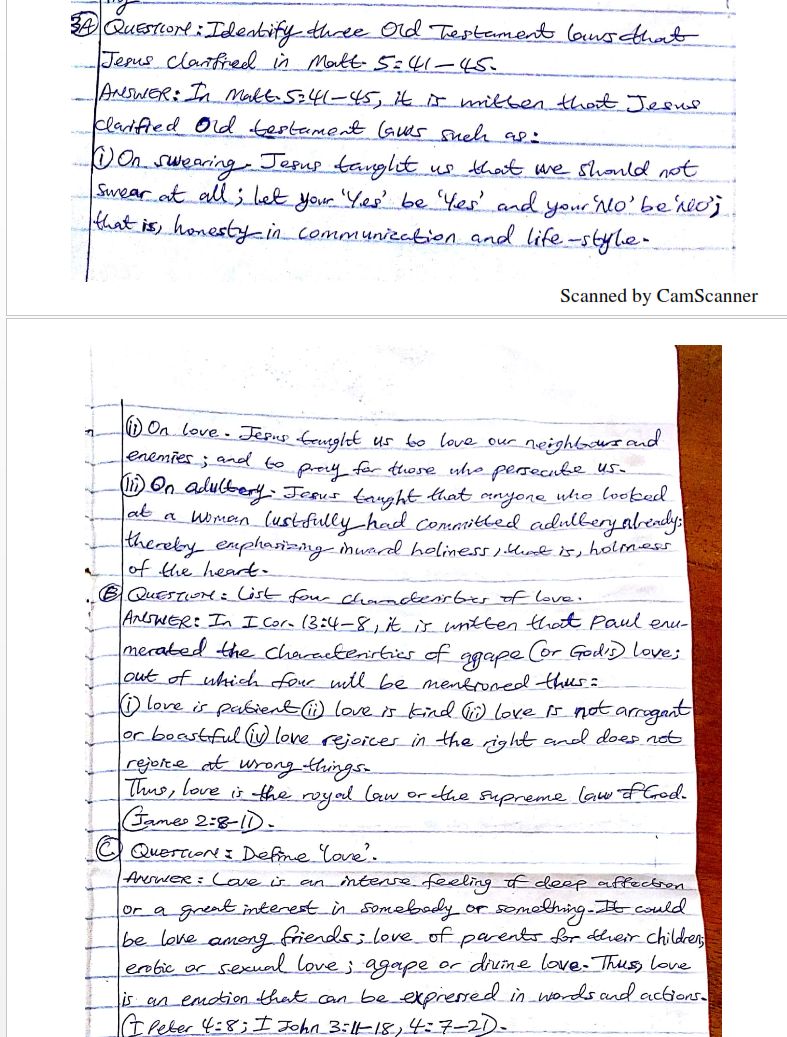 3A QUESTION: Identify three Old Testament laws that
Jesus clarified in Matt. 5:41-45.
ANSWER: In Matt. 5:41-45, it is written that Jesus
clarified Old testament laws such as:
(i) On swearing. Jesus taught us that we should not
swear at all; let your 'Yes' be 'Yes' and your 'No' be 'No';
that is, honesty in communication and life-style.
Scanned by CamScanner
(ii) On love. Jesus taught us to love our neighbours and
enemies; and to pray for those who persecute us.
(iii) On adultery. Jesus taught that anyone who looked
at a woman lustfully had committed adultery already;
thereby emphasizing inward holiness, that is, holiness
of the heart.
B QUESTION: List four characteristics of love.
ANSWER: In I Cor. 13:4-8, it is written that Paul enu-
merated the characteristics of agape (or God's) love;
out of which four will be mentioned thus:
(i) love is patient (ii) love is kind (iii) love is not arrogant
or boastful (iv) love rejoices in the right and does not
rejoice at wrong things.
Thus, love is the royal law or the supreme law of God.
(James 2:8-11).
C QUESTION: Define 'love'.
ANSWER: Love is an intense feeling of deep affection
or a great interest in somebody or something. It could
be love among friends; love of parents for their children;
erotic or sexual love; agape or divine love. Thus, love
is an emotion that can be expressed in words and actions.
(I Peter 4:8; I John 3:11-18, 4:7-21).